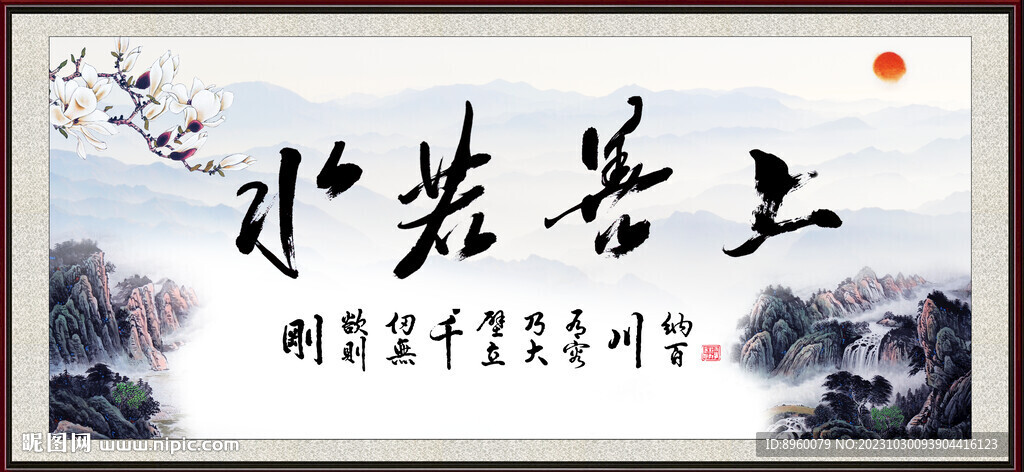 上善若水
纳百
川
有容
乃大
壁立
千
仞無
欲則
剛
昵图网 www.nipic.com
ID:8960079 NO:20231030093904416123